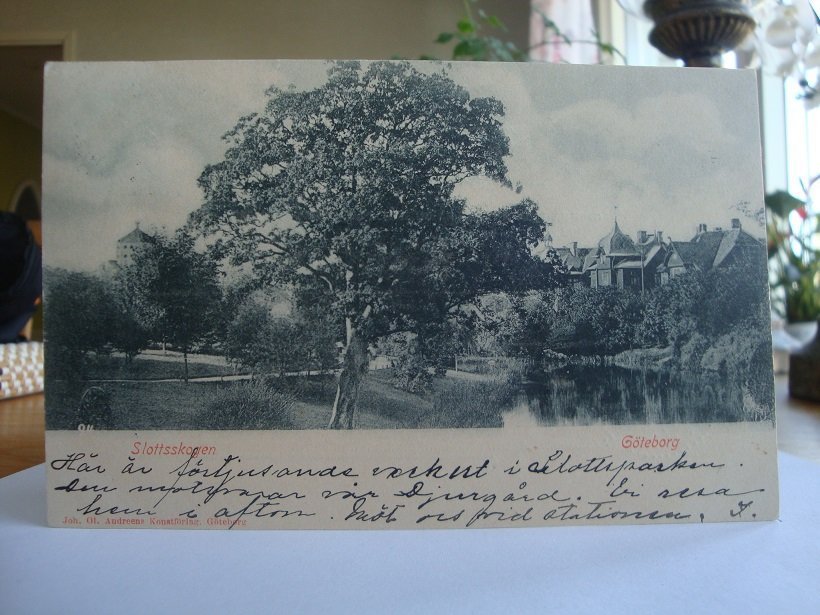 911
Slottsskogen Göteborg
Här är förtjusande vackert i Slottsparken.
Den motsvarar vår Djurgård. Vi resa
hem i afton. Möt oss vid stationen. I.
Joh. Ol. Andreens Konstförlag, Göteborg